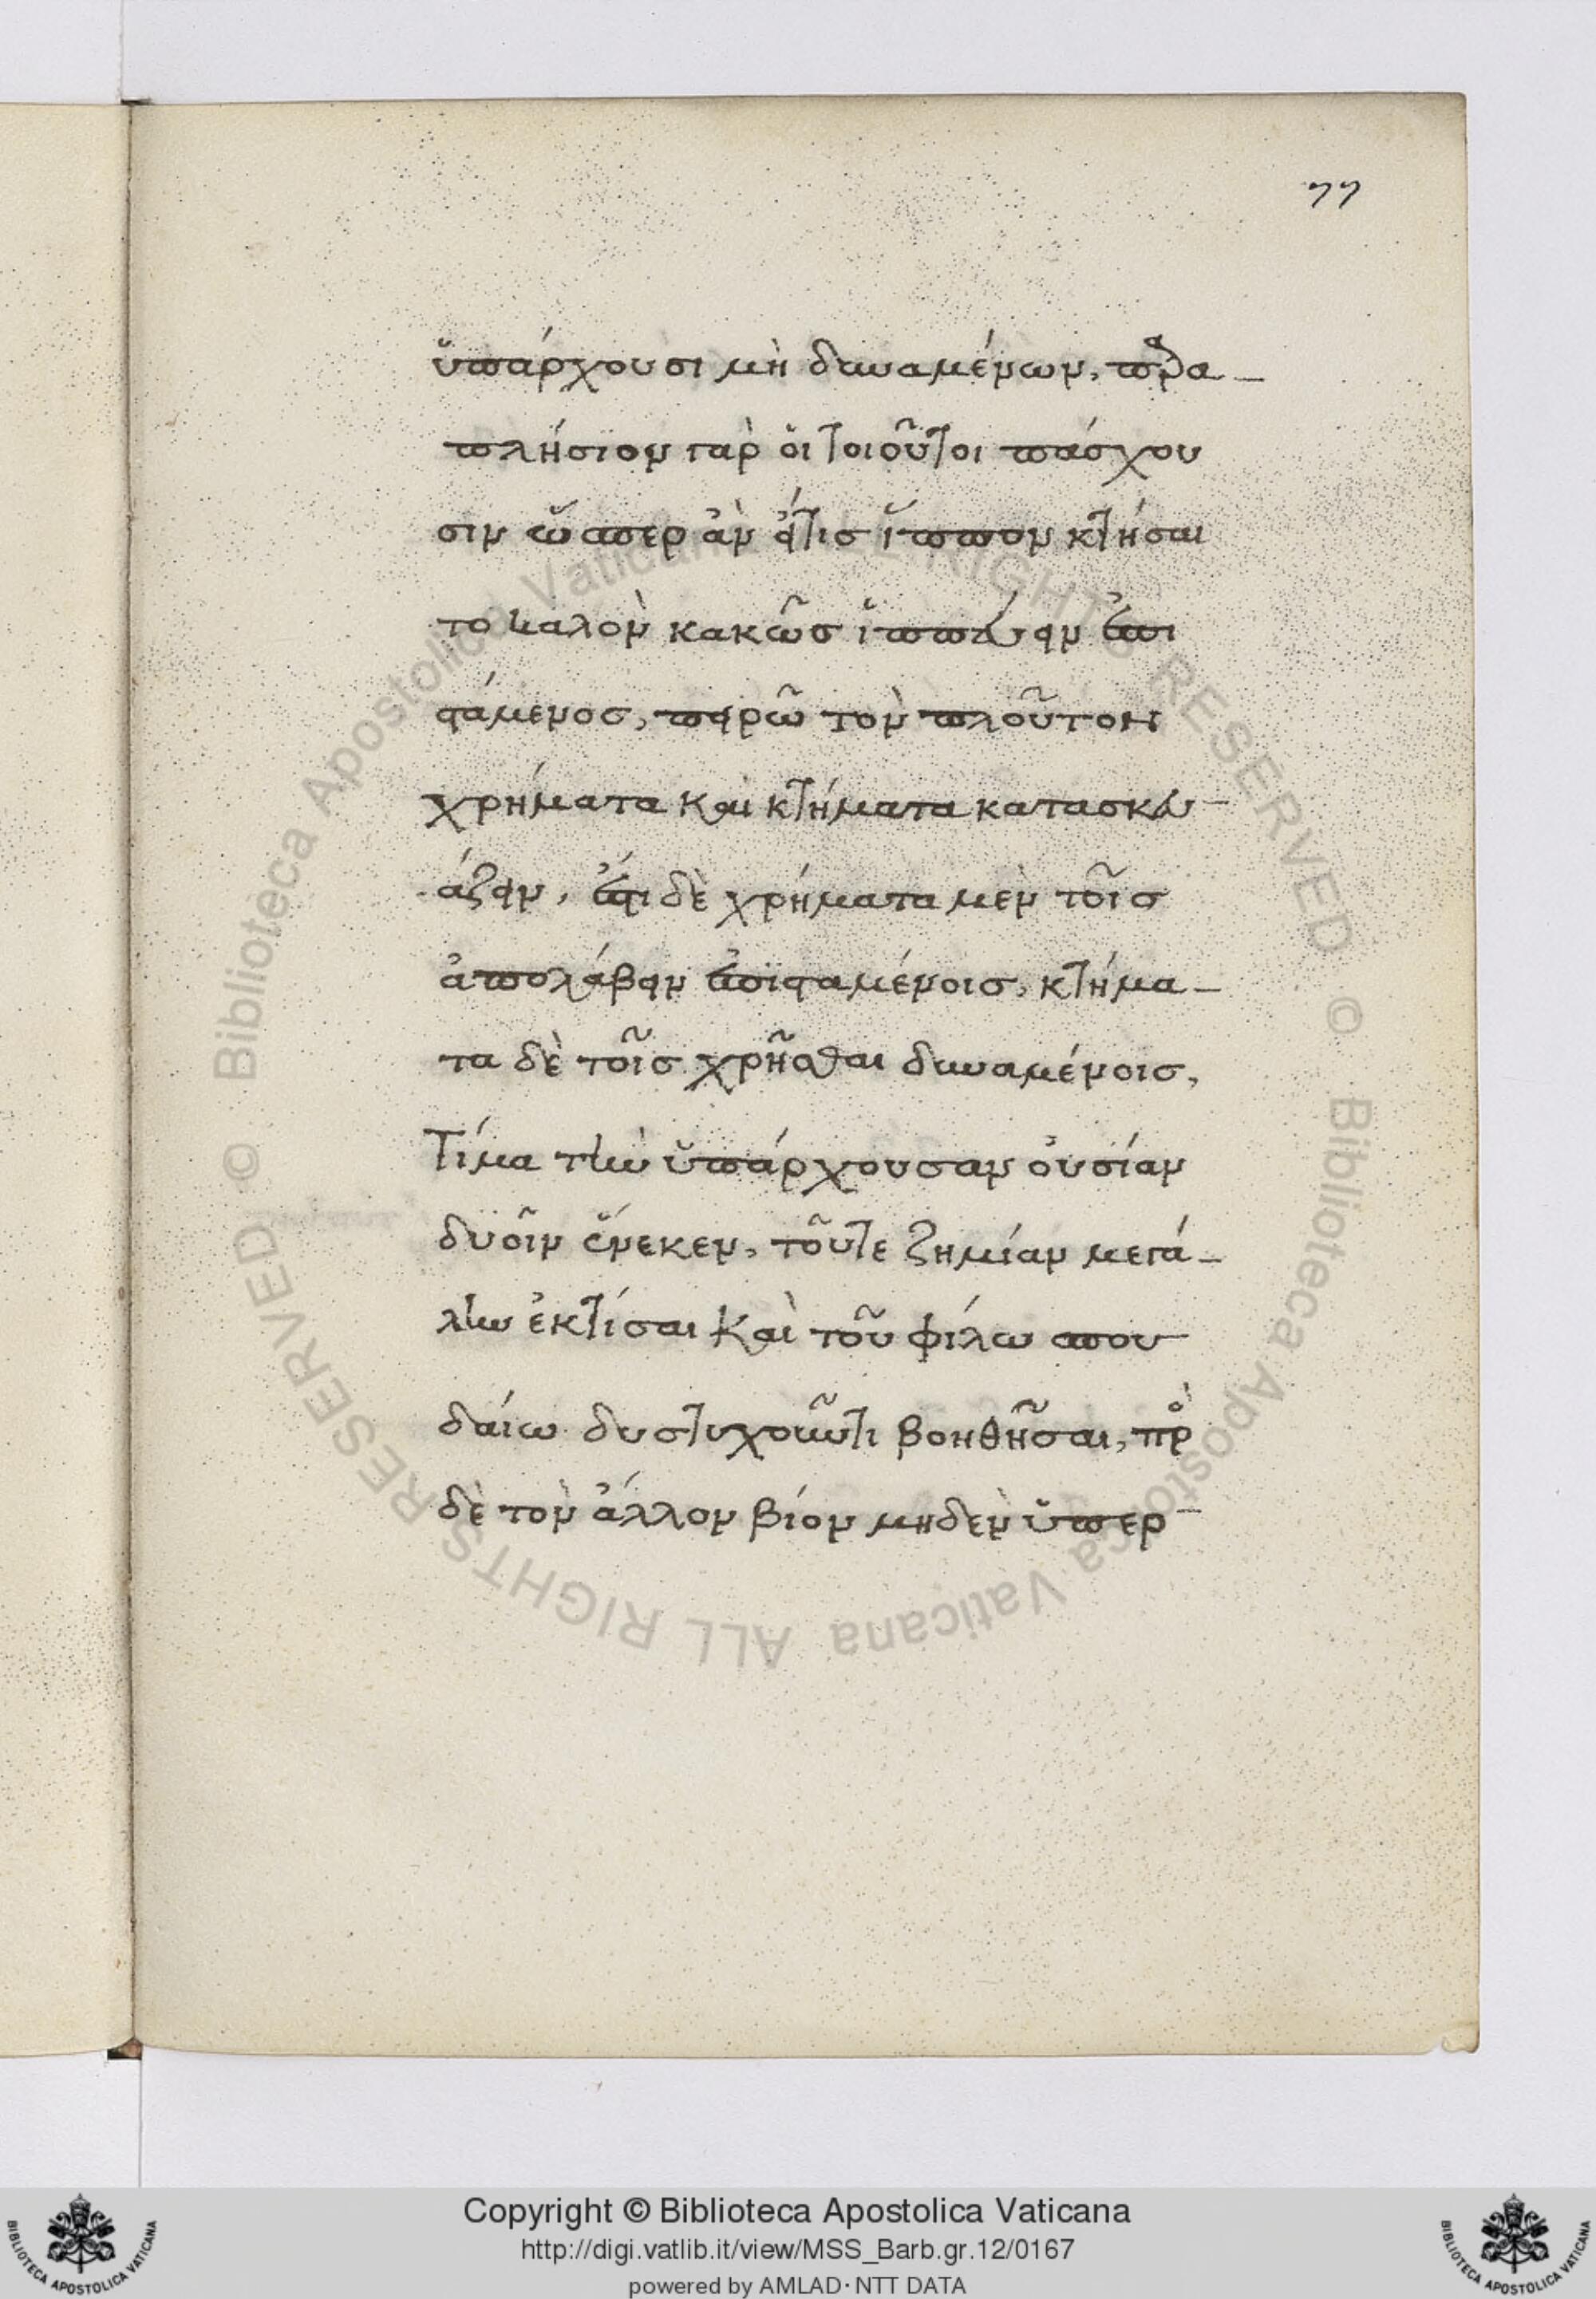 77
ὑπάρχουσι μὴ δυναμένων, παρα-
πλήσιον γὰρ οἱ τοιοῦτοι πάσχου
σιν ὥσπερ ἂν εἴ τις ἵππον κτήσαι
το καλὸν κακῶς ἱππεύειν ἐπι
στάμενος, πειρῶ τὸν πλοῦτον
χρήματα καὶ κτήματα κατασκευ-
άζειν, ἔστι δὲ χρήματα μὲν τοῖς
ἀπολάβειν ἐπισταμένοις, κτήμα-
τα δὲ τοῖς χρῆσθαι δυναμένοις,
Τίμα τὴν ὑπάρχουσαν οὐσίαν
δυοῖν ἕνεκεν, τοῦ τε ζημίαν μεγά-
λην ἐκτίσαι καὶ τοῦ φίλω σπου
δαίω δυστυχοῦντι βοηθῆσαι, πρὸς
δὲ τὸν ἄλλον βίον μηδὲν ὑπερ-
© Biblioteca Apostolica Vaticana ALL RIGHTS RESERVED © Biblioteca Apostolica Vaticana ALL RIGHTS RESERVED
Copyright © Biblioteca Apostolica Vaticana
http://digi.vatlib.it/view/MSS_Barb.gr.12/0167
powered by AMLAD·NTT DATA
BIBLIOTECA APOSTOLICA VATICANA
BIBLIOTECA APOSTOLICA VATICANA